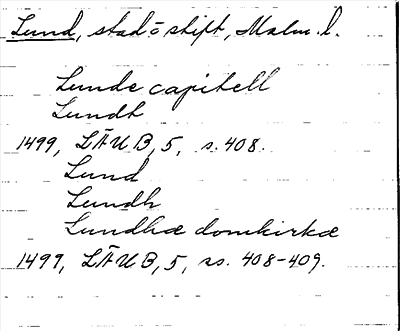 Lund, stad o stift, Malm. l.
Lunde capitell
Lundh
1499, LÄUB, 5, s. 408.
Lund
Lundh
Lundhæ domkirkæ
1499, LÄUB, 5, ss. 408-409.